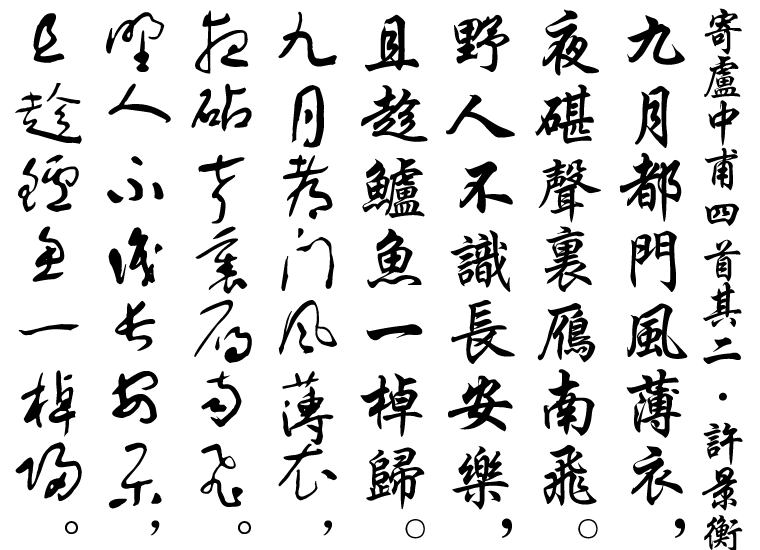 寄盧中甫四首其二・許景衡
九月都門風薄衣，
夜碪聲裏鴈南飛。
野人不識長安樂，
且趁鱸魚一棹歸。
九月都門風薄衣，
夜砧聲裏鴈南飛。
野人不識長安樂，
且趁鱸魚一棹歸。